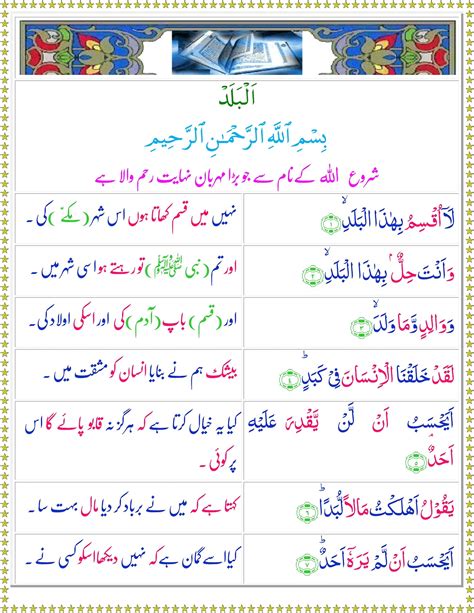 اَلْبَلَدْ
بِسْمِ اللّٰهِ الرَّحْمٰنِ الرَّحِيْمِ
شروع اللہ کے نام سے جو بڑا مہربان نہایت رحم والا ہے
لَاۤ اُقْسِمُ بِهٰذَا الْبَلَدِۙ ﴿۱﴾
نہیں میں قسم کھاتا ہوں اس شہر (مکے) کی ۔
وَاَنْتَ حِلٌّۢ بِهٰذَا الْبَلَدِۙ ﴿۲﴾
اور تم (نبی ﷺ) تو رہتے ہو اسی شہر میں ۔
وَوَالِدٍ وَّمَا وَلَدَۙ ﴿۳﴾
اور (قسم) باپ (آدم) کی اور اسکی اولاد کی ۔
لَقَدْ خَلَقْنَا الْاِنْسَانَ فِیْ كَبَدٍؕ ﴿۴﴾
بیشک ہم نے بنایا انسان کو مشقت میں ۔
اَيَحْسَبُ اَنْ لَّنْ يَّقْدِرَ عَلَيْهِ
اَحَدٌۘ ﴿۵﴾
کیا یہ خیال کرتا ہے کہ ہرگز نہ قابو پائے گا اس
پر کوئی ۔
يَقُوْلُ اَهْلَكْتُ مَالًا لُّبَدًاؕ ﴿۶﴾
کہتا ہے کہ میں نے برباد کر دیا مال بہت سا ۔
اَيَحْسَبُ اَنْ لَّمْ يَرَهٗۤ اَحَدٌؕ ﴿۷﴾
کیا اسے گمان ہے کہ نہیں دیکھا اسکو کسی نے ۔